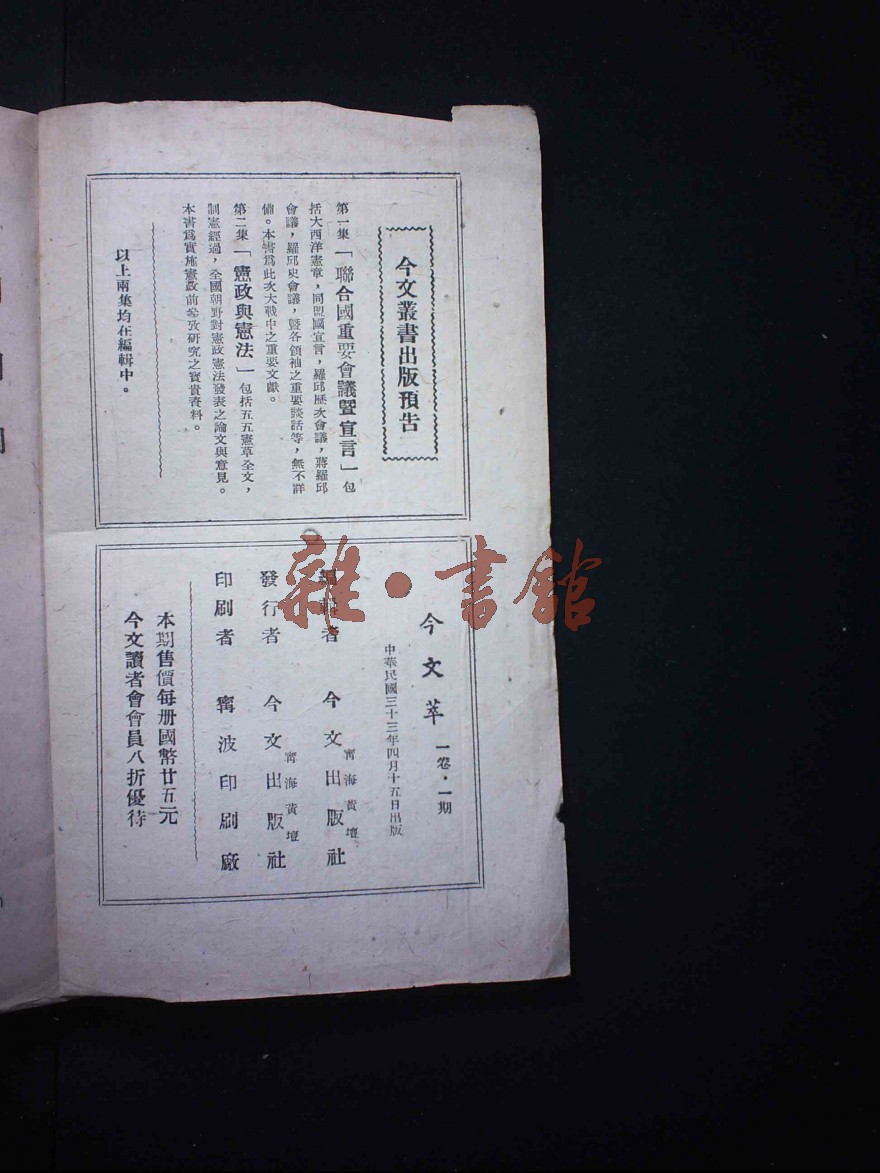 今文叢書出版預告
第一集「聯合國重要會議暨宣言」包
括大西洋憲章，同盟國宣言，羅邱歷次會議，蔣羅邱
會議，羅邱史會議，暨各領袖之重要談話等，無不詳
備。本書爲此次大戰中之重要文獻。
第二集「憲政與憲法」包括五五憲草全文，
制憲經過，全國朝野對憲政憲法發表之論文與意見。
本書爲實施憲政前參攷研究之寶貴資料。
以上兩集均在編輯中。
今文萃 一卷·一期
中華民國三十三年四月十五日出版
編輯者 今文出版社 甯海黃壇
發行者 今文出版社 甯海黃壇
印刷者 甯波印刷廠
本期售價每册國幣廿五元
今文讀者會會員八折優待
雜·書館